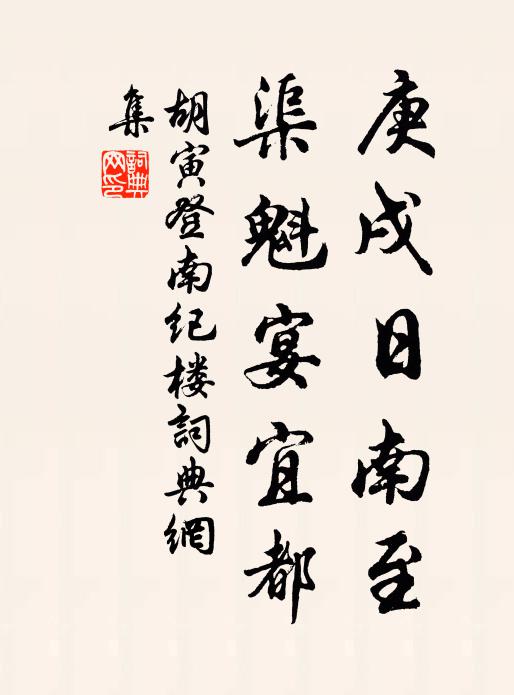 庚戌日南至
渠魁宴宜都
胡寅登南纪楼詞典網
集
詞典
网印